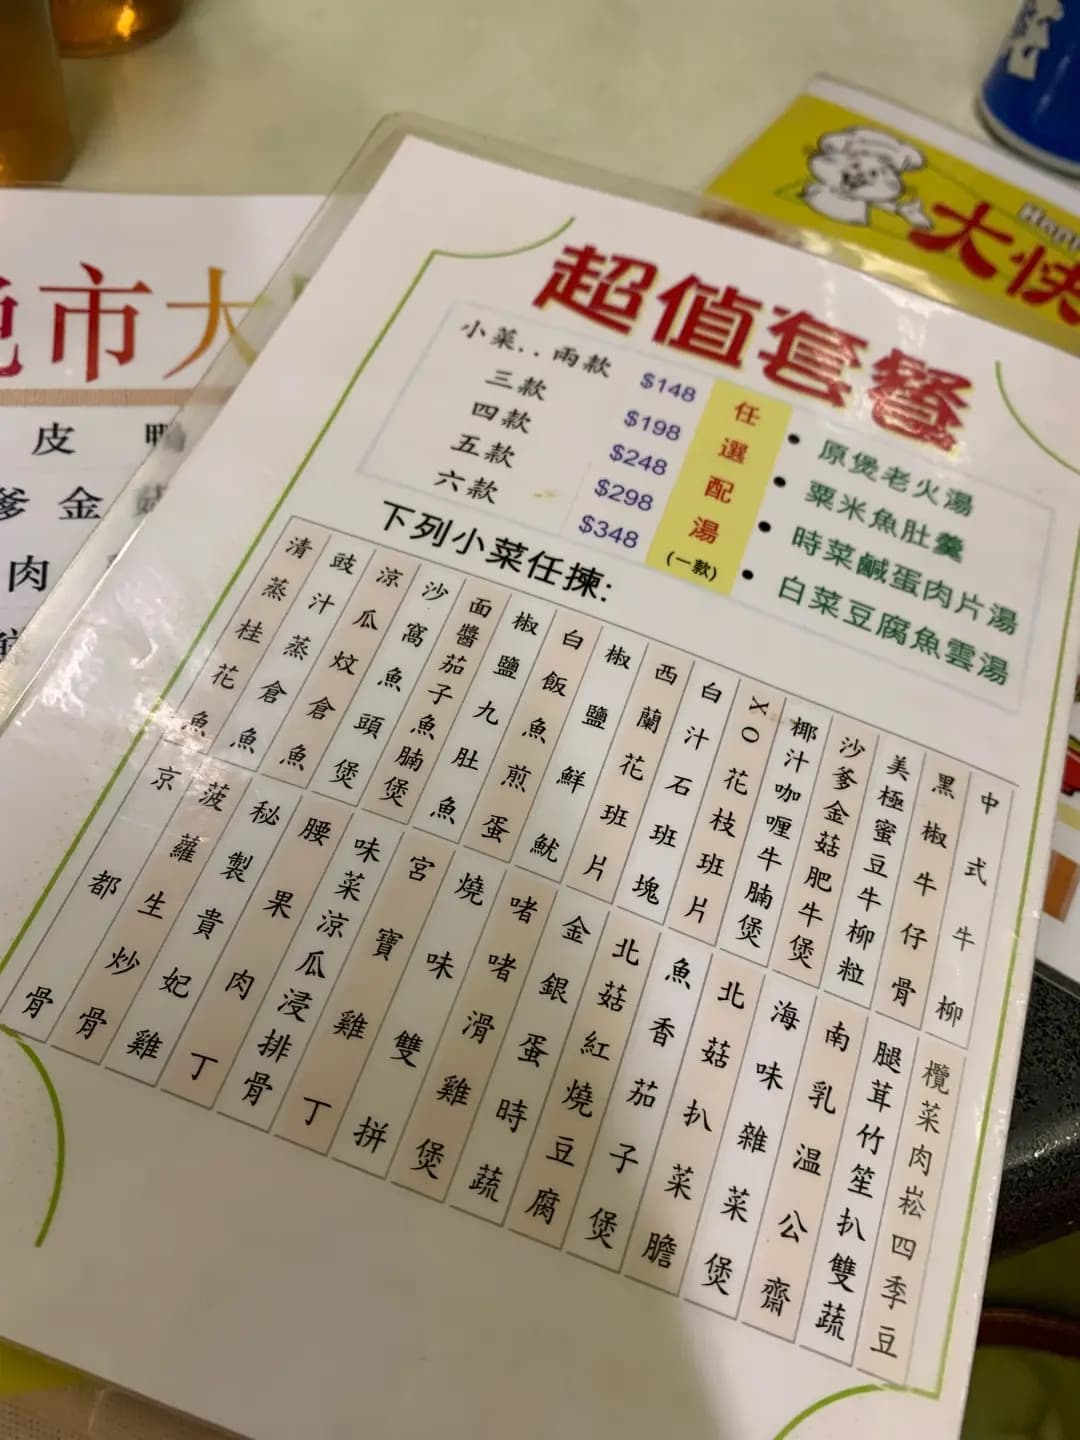 大快
市大
皮 鴨
爹金
肉
超值套餐
小菜..兩款 $148
三款 $198
四款 $248
五款 $298
六款 $348
任選配湯
(一款)
• 原煲老火湯
• 粟米魚肚羹
• 時菜鹹蛋肉片湯
• 白菜豆腐魚雲湯
下列小菜任揀:
中式牛柳
黑椒牛仔骨
美極蜜豆牛柳粒
沙爹金菇肥牛煲
椰汁咖喱牛腩煲
XO花枝班片
白汁石班塊
西蘭花班片
椒鹽鮮魷
白飯魚煎蛋
椒鹽九肚魚
面醬茄子魚腩煲
沙窩魚頭煲
涼瓜炆倉魚
豉汁蒸倉魚
清蒸桂花魚
欖菜肉崧四季豆
腿茸竹笙扒雙蔬
南乳温公齋
海味雜菜煲
北菇扒菜膽
魚香茄子煲
北菇紅燒豆腐
金銀蛋時蔬
啫啫滑雞煲
燒味雙拼
宮寶雞丁
味菜涼瓜浸排骨
腰果肉丁
秘製貴妃雞
菠蘿生炒骨
京都骨